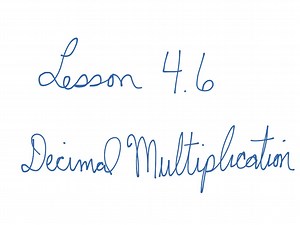 Lesson 4.6
Decimal Multiplication